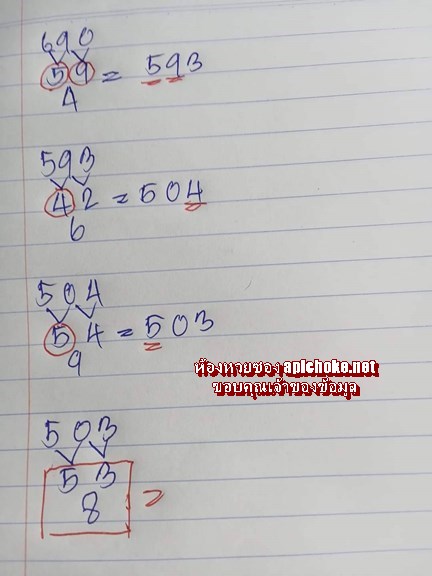 690
59 = 593
4
593
42 = 504
6
504
54 = 503
9
ห้องหวยของ apichoke.net
ขอบคุณเจ้าของข้อมูล
503
53 =
8